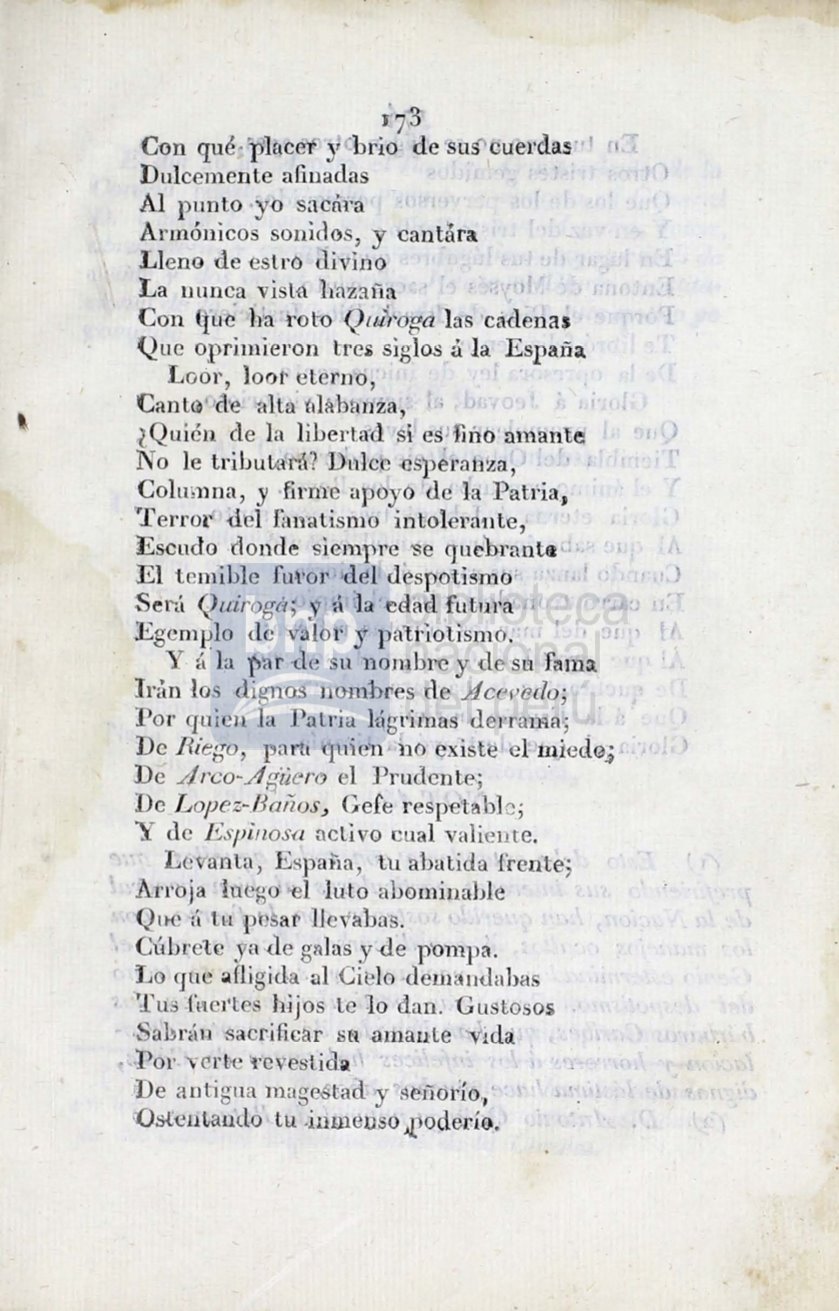 173
Con qué placer y brio de sus cuerdas
Dulcemente afinadas
Al punto yo sacára
Armónicos sonidos, y cantára
Lleno de estro divino
La nunca vista hazaña
Con que ha roto Quiroga las cadenas
Que oprimieron tres siglos á la España
Loor, loor eterno,
Canto de alta alabanza,
¿Quién de la libertad si es fino amante
No le tributará? Dulce esperanza,
Columna, y firme apoyo de la Patria,
Terror del fanatismo intolerante,
Escudo donde siempre se quebranta
El temible furor del despotismo
Será Quiroga; y á la edad futura
Egemplo de valor y patriotismo.
Y á la par de su nombre y de su fama
Irán los dignos nombres de Acevedo;
Por quien la Patria lágrimas derrama;
De Riego, para quien no existe el miedo;
De Arco-Agüero el Prudente;
De Lopez-Baños, Gefe respetable;
Y de Espinosa activo cual valiente.
Levanta, España, tu abatida frente;
Arroja luego el luto abominable
Que á tu pesar llevabas.
Cúbrete ya de galas y de pompa.
Lo que afligida al Cielo demandabas
Tus fuertes hijos te lo dan. Gustosos
Sabrán sacrificar su amante vida
Por verte revestida
De antigua magestad y señorío,
Ostentando tu inmenso poderío.
bnp biblioteca
nacional
del perú